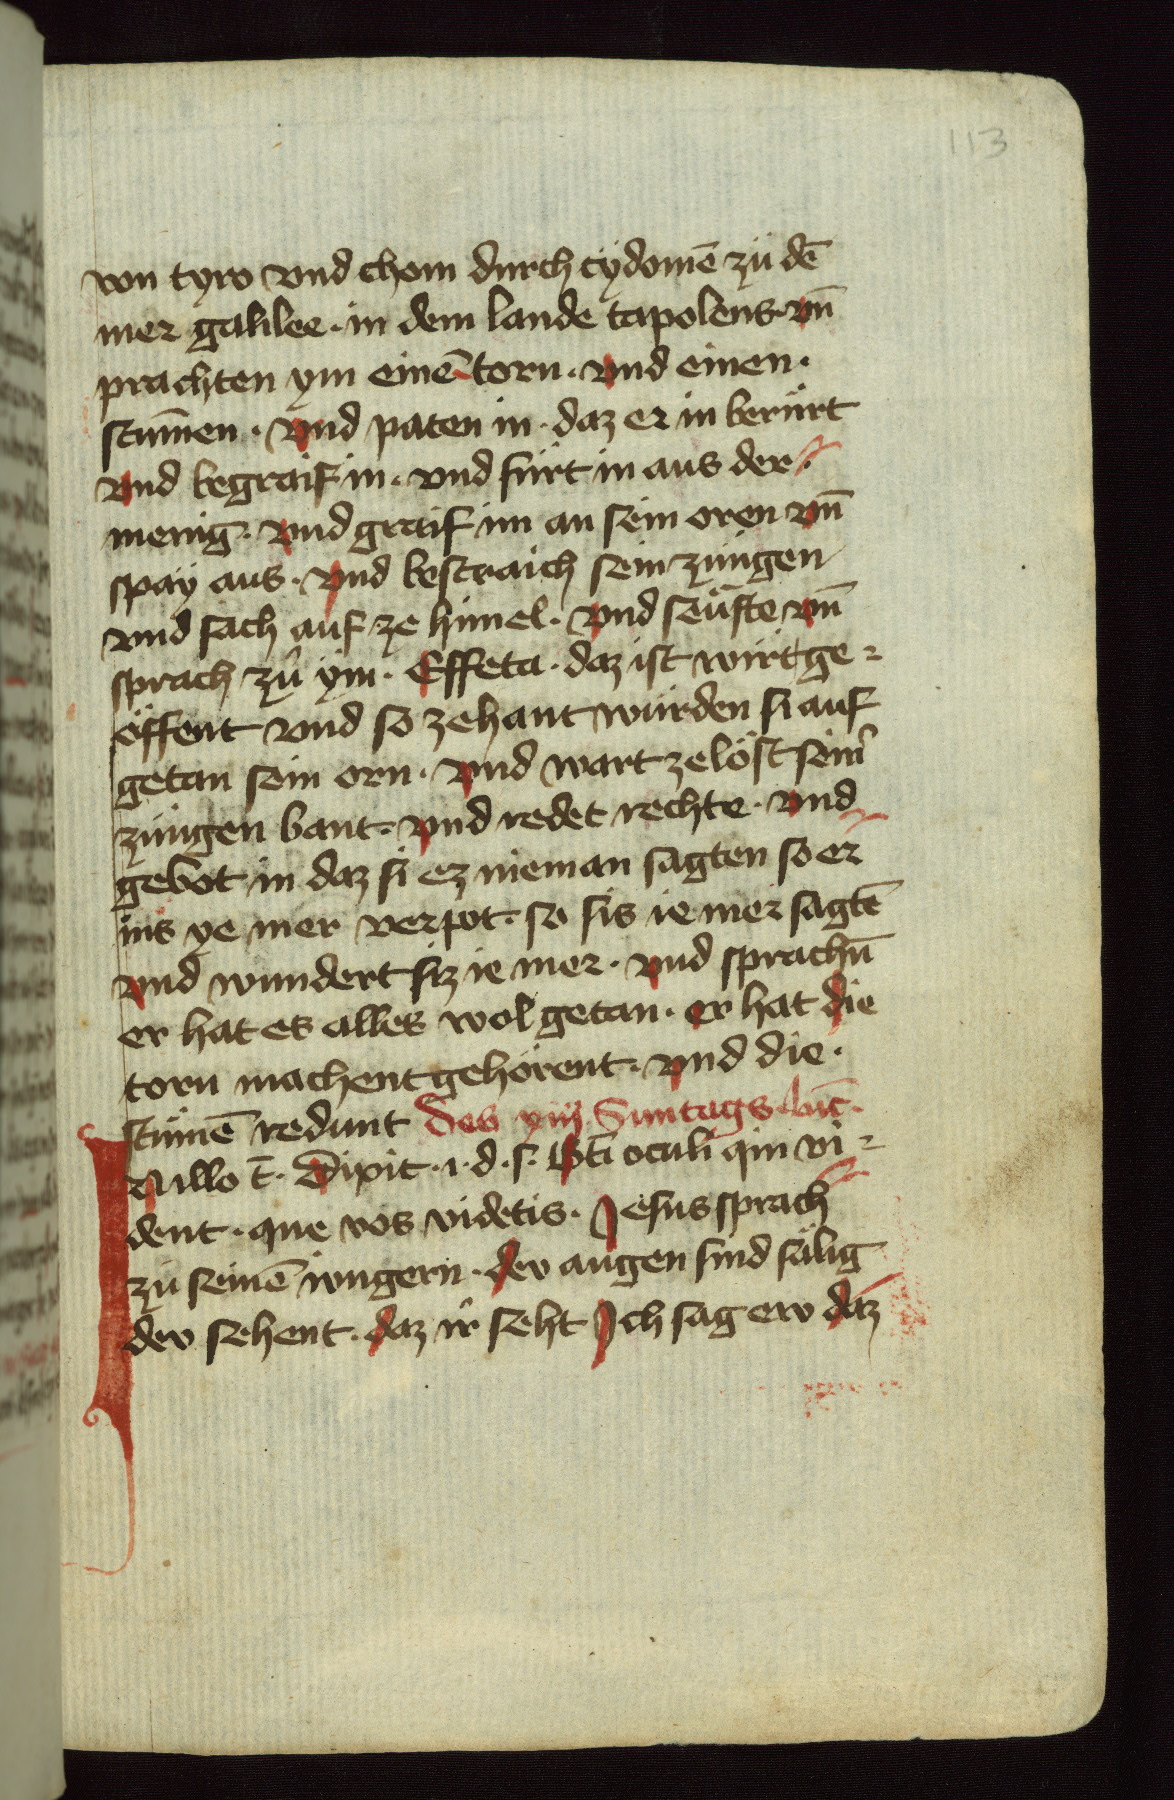 113
von tyro vnd chom durch cydomē zů dē
mer galilee · in dem lande tapolens · vn̄
prachten ym einē torn · vnd einen ·
stum̄en · vnd paten in · daz er in berürt
vnd begraif in · vnd fürt in aus der
menig · vnd graif im an sein oren vn̄
spay aus · vnd bestraich sein zungen
vnd sach auf ze himel · vnd seüfte vn̄
sprach zů ym · Effeta · daz ist wirt ge-
öffent vnd so zehant würden si auf
getan sein orn · vnd wart zelöst seinr
zungen bant · vnd redet rechte · vnd
gebot in daz si ez nieman sagten so er
ins ye mer verpot · so sis ie mer sagtē
vnd wundert siz ie mer · vnd sprachn̄
er hat es alles wol getan · er hat die
torn machent gehörent · vnd die ·
stum̄ē redunt Des xiij Suntags · luc̄ ·
In illo t̄ · Dixit · i · d · s · Bt̄i oculi qui vi-
dent · que vos videtis · Jesus sprach
zů seinē iungern · dev augen sind sälig
dev sehent · daz ir seht Jch sag ew daz